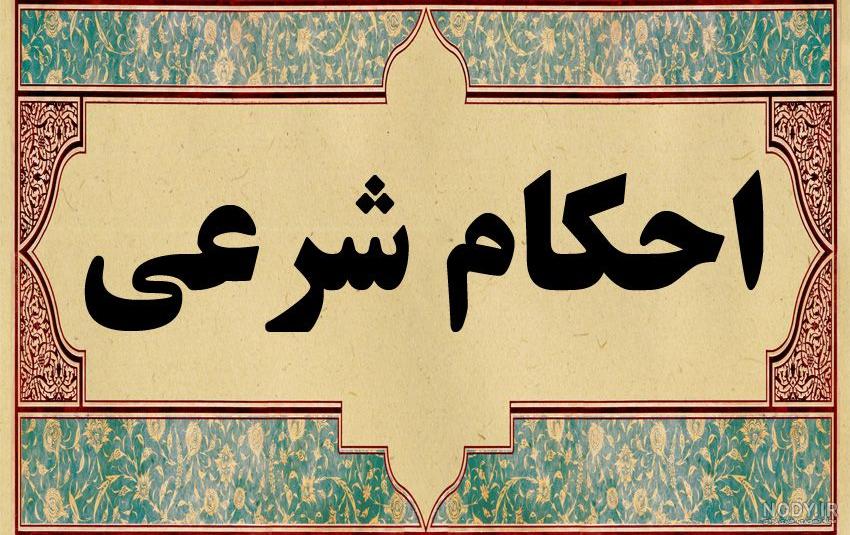 احکام شرعی
NODY.IR